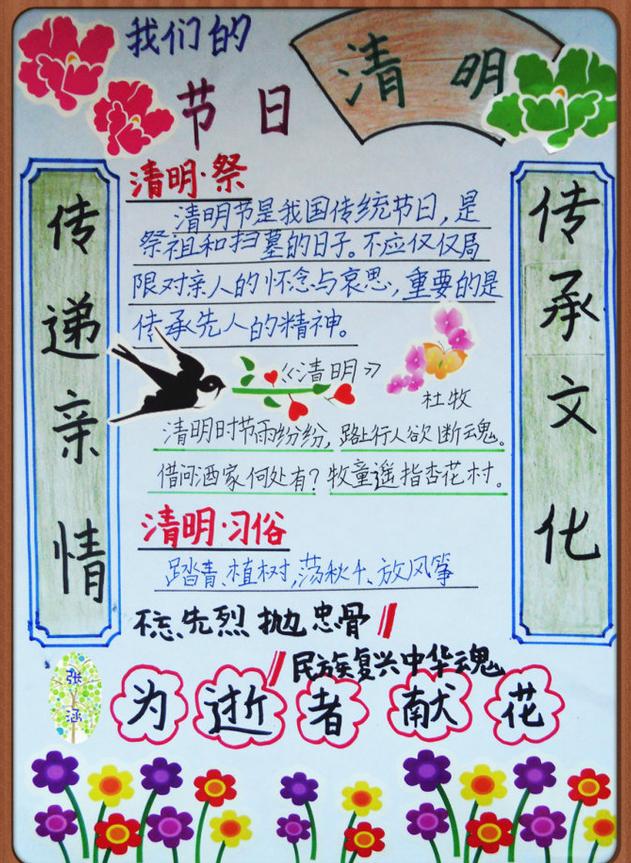 我们的
节日
清明
清明·祭
清明节是我国传统节日,是
祭祖和扫墓的日子。不应仅仅局
限对亲人的怀念与哀思,重要的是
传承先人的精神。
传递亲情
传承文化
《清明》
杜牧
清明时节雨纷纷,路上行人欲断魂。
借问酒家何处有?牧童遥指杏花村。
清明·习俗
踏青、植树,荡秋千、放风筝
不忘先烈 抛忠骨
民族复兴中华魂
张涵
为逝者献花